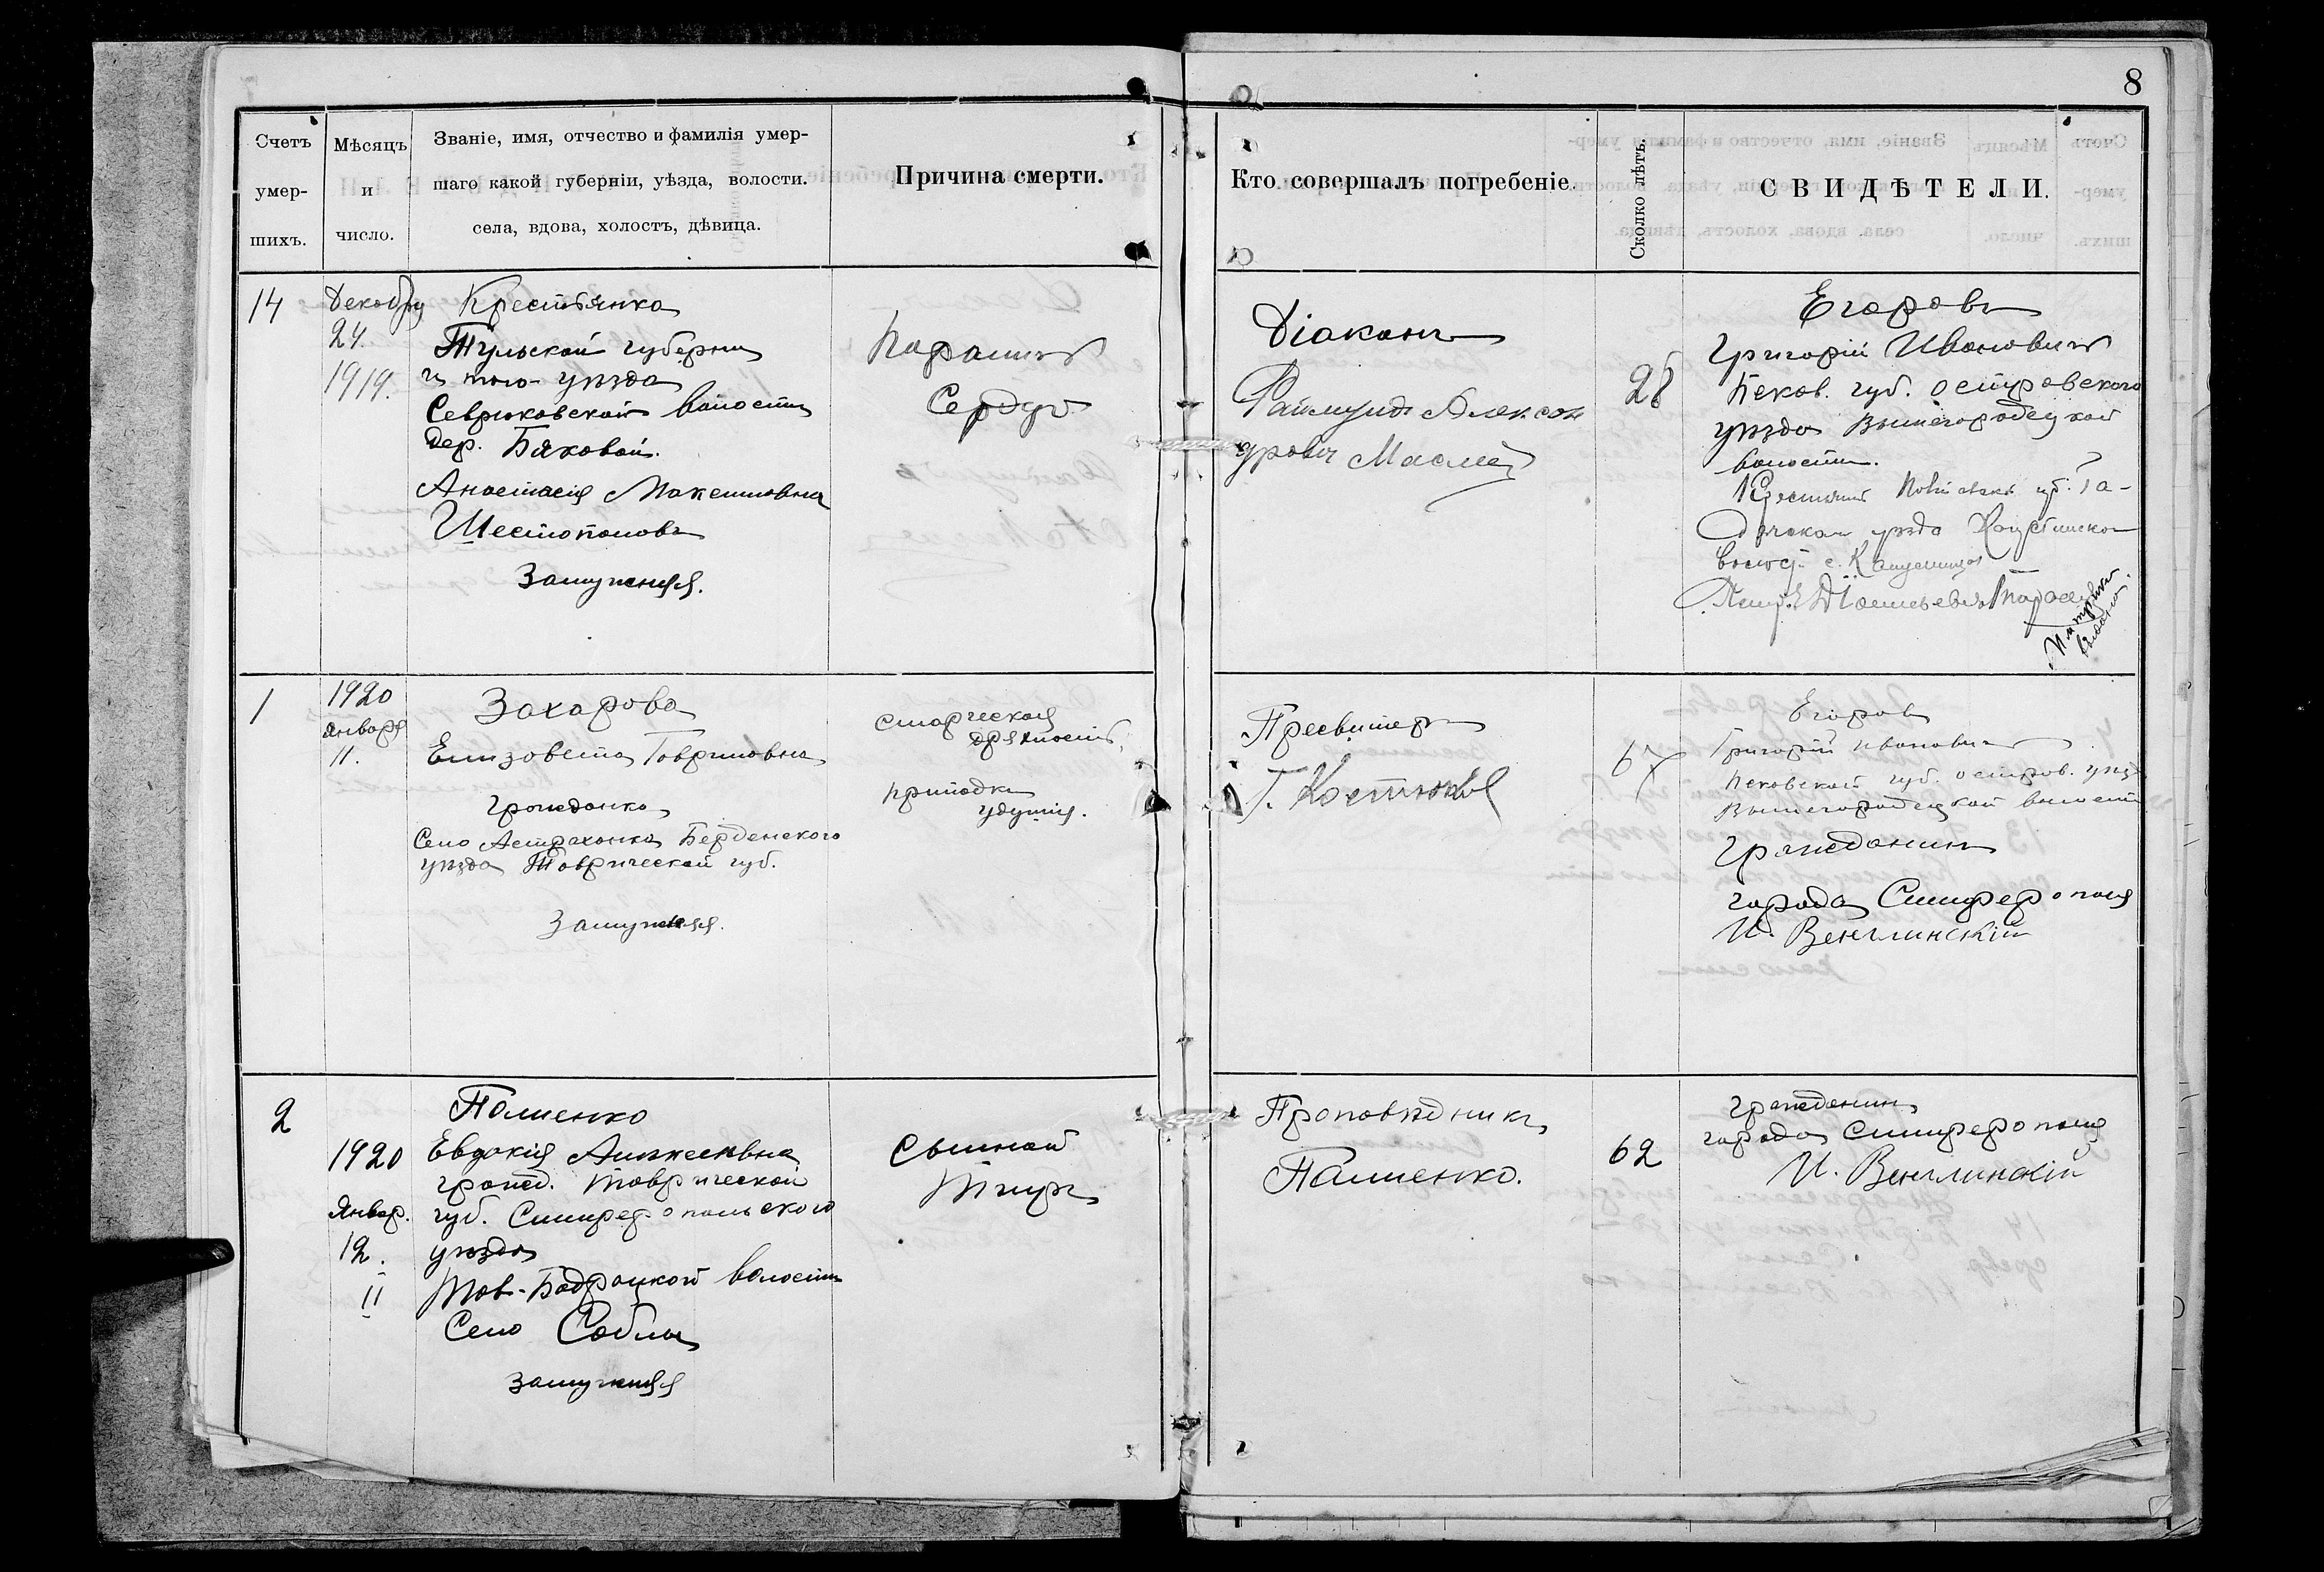 8
Счетъ
умер-
шихъ.
Мѣсяцъ
и
число.
Званіе, имя, отчество и фамилія умер-
шаго какой губерніи, уѣзда, волости.
села, вдова, холостъ, дѣвица.
Причина смерти.
Кто совершалъ погребеніе.
Сколко лѣтъ.
СВИДѢТЕЛИ.
14
Декабря
24.
1919.
Крестьянка
Тульской губерніи
и того-уѣзда
Севрюковской волости
дер. Бяковой.
Анастасія Максимовна
Шестопалова
Замужняя.
Параличъ
Сердца
Діаконъ
Раймундъ Алексан
дровъ
28
Егоровъ
Григорій Ивановичъ
Псков. губ. Островского
уѣзда Вышегородецкой
волости.
уѣзда
1
1920
Января
11.
Захарова
Елизавета Гавриловна
Гражданка
Село Астраханка Бердянского
уѣзда Таврической губ.
Замужняя.
старческая
дряхлость,
припадки
удушія.
Пресвитеръ
Г. Костюков
67
Егоров
Григорій Ивановичъ
Псковской губ. Остров. уѣз.
Вышегородецкой волости
Гражданинъ
города Симферополя
И. Венглинскій
2
1920
Январ.
12.
11
Пашенко
Евдокія Алексѣевна
гражд. Таврической
губ. Симферопольского
уѣзда
Тав-Бадракской волости
Село Саблы
замужняя
Сыпной
Тифъ
Проповѣдникъ
Пашенко.
62
гражданинъ
города Симферополя
И. Венглинскій